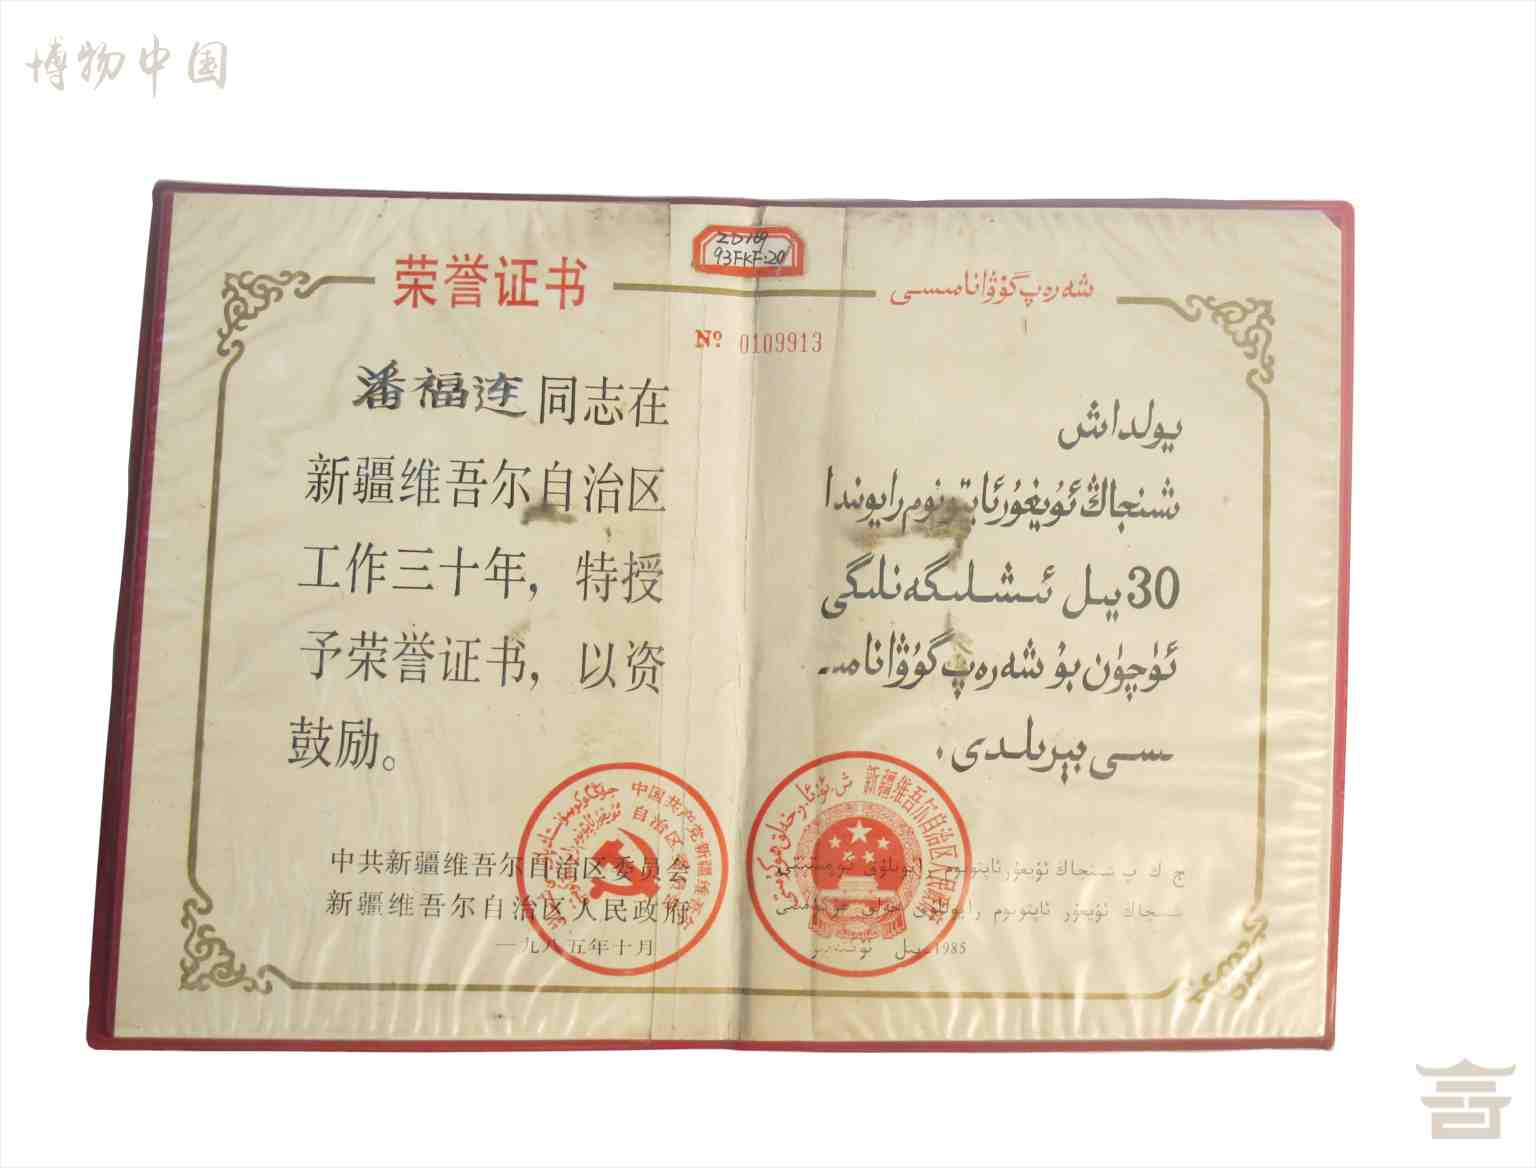 博物中国
ZD169
93FKF:20
荣誉证书
شەرەپ گۇۋانامىسى
Nº 0109913
潘福连同志在
新疆维吾尔自治区
工作三十年，特授
予荣誉证书，以资
鼓励。
يولداش
شىنجاڭ ئۇيغۇر ئاپتونوم رايونىدا
30 يىل ئىشلىگەنلىگى
ئۈچۈن بۇ شەرەپ گۇۋانامى-
سى بېرىلدى.
中共新疆维吾尔自治区委员会
新疆维吾尔自治区人民政府
一九八五年十月
ج ك پ شىنجاڭ ئۇيغۇر ئاپتونوم رايونلۇق كومىتېتى
شىنجاڭ ئۇيغۇر ئاپتونوم رايونلۇق خەلق ھۆكۈمىتى
1985-يىل ئۆكتەبىر
中国共产党新疆维吾尔
自治区委员会
新疆维吾尔自治区人民政府